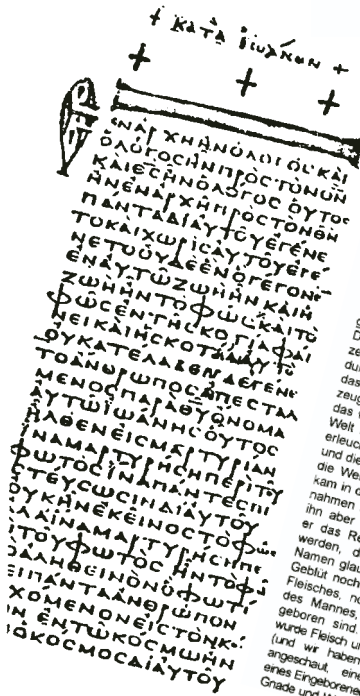 + ΚΑΤᾺ ΪΩΆΝΝΗΝ +
ΕΝΑΡΧΗΗΝΟΛΟΓΟϹΚΑΙ
ΟΛΟΓΟϹΗΝΠΡΟϹΤΟΝΘΝ
ΚΑΙΘϹΗΝΟΛΟΓΟϹΟΥΤΟϹ
ΗΝΕΝΑΡΧΗΠΡΟϹΤΟΝΘΝ
ΠΑΝΤΑΔΙΑΥΤΟΥΕΓΕΝΕ
ΤΟΚΑΙΧΩΡΙϹΑΥΤΟΥΕΓΕ
ΝΕΤΟΟΥΔΕΕΝΟΓΕΓΟΝΕ
ΕΝΑΥΤΩΖΩΗΗΝΚΑΙΗ
ΖΩΗΗΝΤΟΦΩϹΚΑΙΤΟ
ΦΩϹΕΝΤΗϹΚΟΤΙΑΦΑΙ
ΝΕΙΚΑΙΗϹΚΟΤΙΑΑΥΤΟ
ΟΥΚΑΤΕΛΑΒΕΝ ΔΕΓΕΝΕ
ΤΟΑΝΘΡΩΠΟϹΑΠΕϹΤΑΛ
ΜΕΝΟϹΠΑΡΑΘΥΟΝΟΜΑ
ΑΥΤΩΙΩΑΝΗϹΟΥΤΟϹ
ΗΛΘΕΝΕΙϹΜΑΡΤΥΡΙΑΝ
ΙΝΑΜΑΡΤΥΡΗϹΗΠΕΡΙΤΟΥ
ΦΩΤΟϹΙΝΑΠΑΝΤΕϹΠΙ
ϹΤΕΥϹΩϹΙΝΔΙΑΥΤΟΥ
ΟΥΚΗΝΕΚΕΙΝΟϹΤΟΦΩϹ
ΑΛΛΙΝΑΜΑΡΤΥΡΗϹΗΠΕ
ΡΙΤΟΥΦΩΤΟϹ ΗΝΤΟΦΩ
ΤΟΑΛΗΘΕΙΝΟΝΟΦΩΤΙ
ΖΕΙΠΑΝΤΑΑΝΘΡΩΠΟΝ
ΡΧΟΜΕΝΟΝΕΙϹΤΟΝΚΟ
Ν ΕΝΤΩΚΟϹΜΩΗΝ
ΟΚΟϹΜΟϹΔΙΑΥΤΟΥ
das
zeug
das
Welt
erleuc
und die
die Wel
kam in d
nahmen
ihn aber
er das Re
werden, d
Namen glau
Geblüt noch
Fleisches, no
des Mannes,
geboren sind.
wurde Fleisch u
(und wir haben
angeschaut, ein
eines Eingeborene
Gnade und W